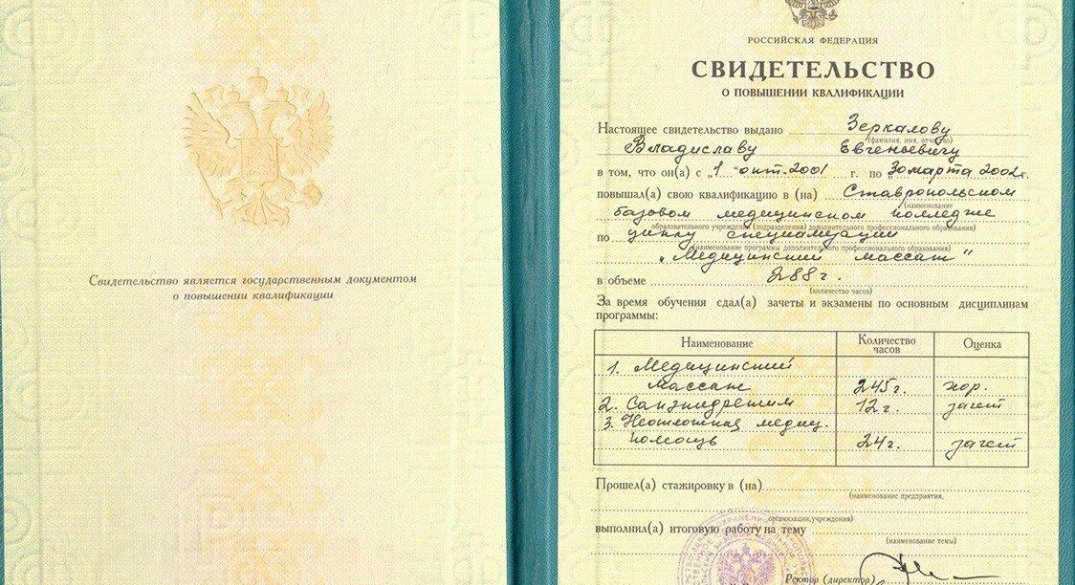 Свидетельство является государственным документом
о повышении квалификации
РОССИЙСКАЯ ФЕДЕРАЦИЯ
СВИДЕТЕЛЬСТВО
О ПОВЫШЕНИИ КВАЛИФИКАЦИИ
Настоящее свидетельство выдано Зеркалову
(фамилия, имя, отчество)
Владиславу Евгеньевичу
в том, что он(а) с „1 “ окт. 2001 г. по 30 марта 2002г.
повышал(а) свою квалификацию в (на) Ставропольском
(наименование
базовом медицинском колледже
образовательного учреждения (подразделения) дополнительного профессионального образования)
по циклу специализации
(наименование программы дополнительного профессионального образования)
„Медицинский массаж“
в объеме 288 г.
(количество часов)
За время обучения сдал(а) зачеты и экзамены по основным дисциплинам
программы:
Наименование Количество часов Оценка
1. Медицинский
массаж 245 г. хор.
2. Санэпидрежим 12 г. зачет
3. Неотложная медиц.
помощь 24 г. зачет
Прошел(а) стажировку в (на)
(наименование предприятия,
организации, учреждения)
выполнил(а) итоговую работу на тему
(наименование темы)
Ректор (директор)